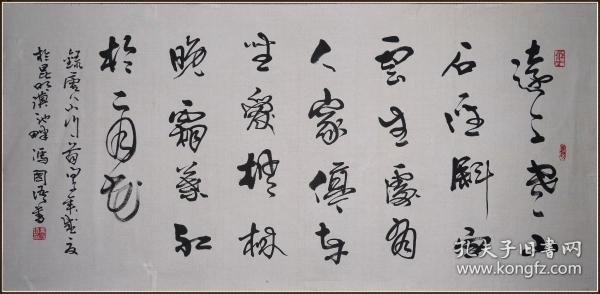 遠上寒山
石径斜白
雲生處有
人家停車
坐愛楓林
晚霜葉紅
於二月花
於昆明滇池畔馮國語書
孔夫子旧书网
www.kongfz.com